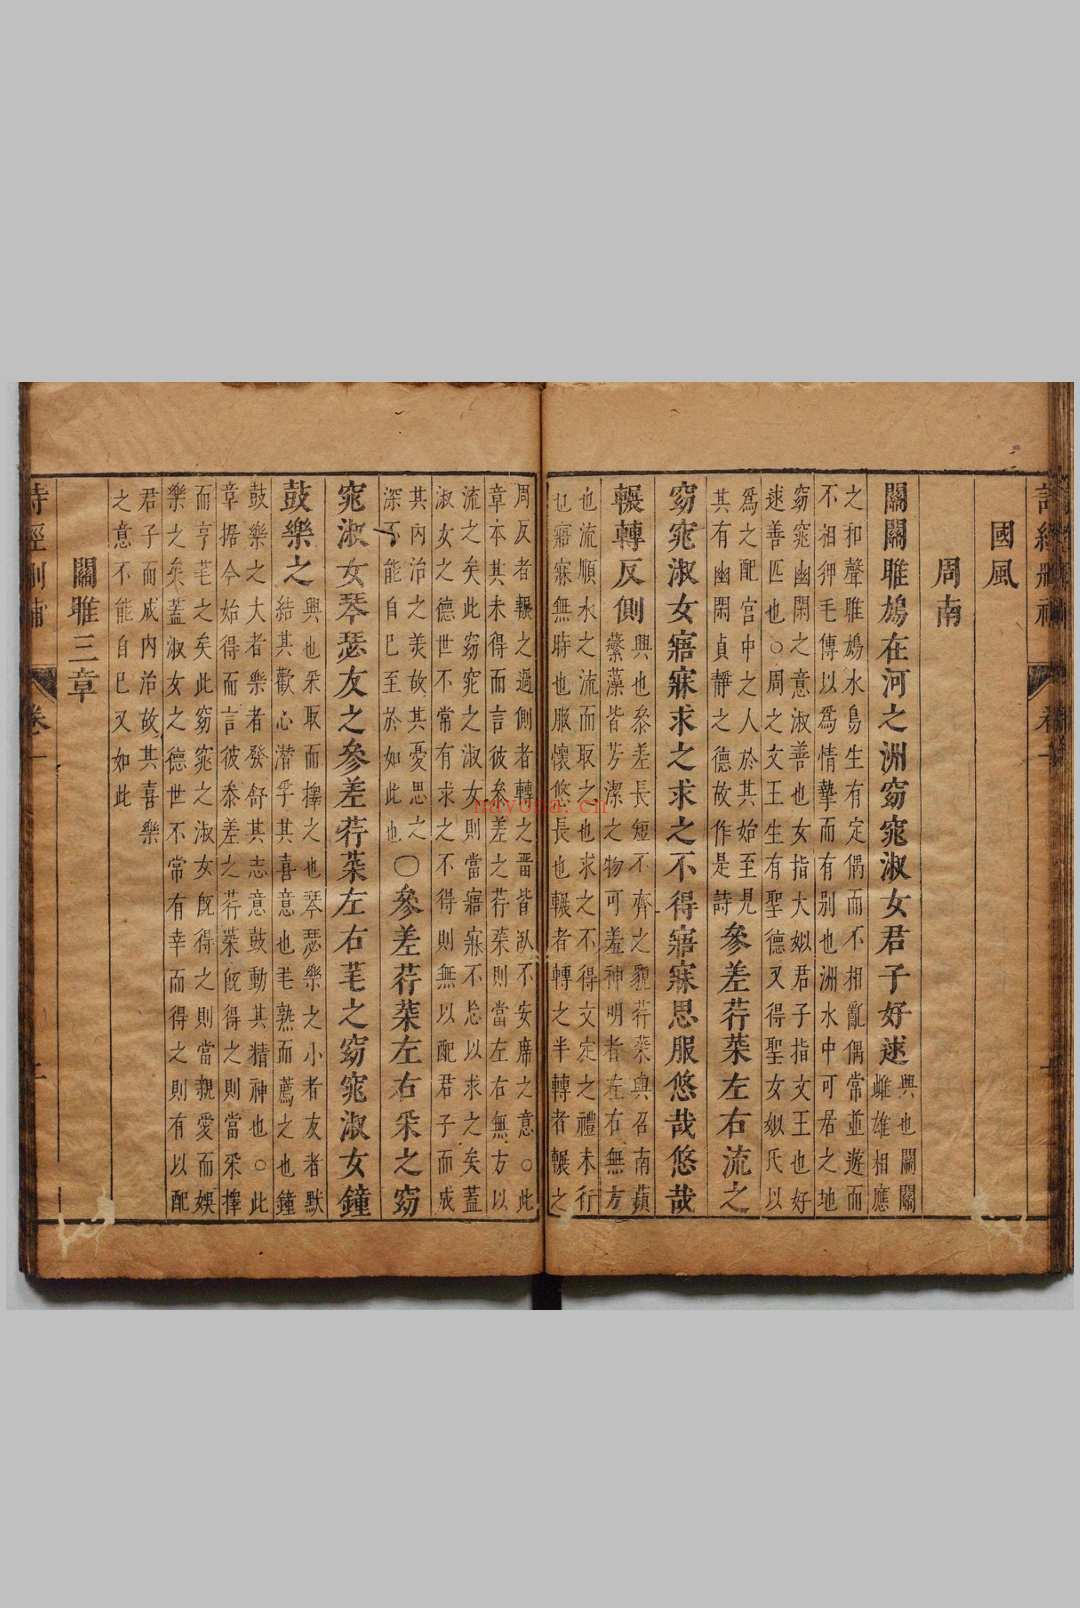 國風
周南
關關雎鳩在河之洲窈窕淑女君子好逑
興也關關
雌雄相應
之和聲雎鳩水鳥生有定偶而不相亂偶常並遊而
不相狎毛傳以爲情摯而有别也洲水中可居之地
窈窕幽閑之意淑善也女指大姒君子指文王也好
逑善匹也○周之文王生有聖德又得聖女姒氏以
爲之配宮中之人於其始至見
其有幽閑貞靜之德故作是詩
參差荇菜左右流之
窈窕淑女寤寐求之求之不得寤寐思服悠哉悠哉
輾轉反側
興也參差長短不齊之貌荇菜與召南蘋
蘩藻皆芳潔之物可羞神明者左右無方
也流順水之流而取之也求之不得文定之禮未行
也寤寐無時也服懷悠長也輾者轉之半轉者輾之
周反者輾之過側者轉之畱皆臥不安席之意○此
章本其未得而言彼參差之荇菜則當左右無方以
流之矣此窈窕之淑女則當寤寐不忘以求之矣蓋
淑女之德世不常有求之不得則無以配君子而成
其內治之美故其憂思之
深不能自已至於如此也
○參差荇菜左右采之窈
窕淑女琴瑟友之參差荇菜左右芼之窈窕淑女鐘
鼓樂之
興也采取而擇之也琴瑟樂之小者友者默
結其歡心潜乎其喜意也芼熟而薦之也鐘
鼓樂之大者樂者發舒其志意鼓動其精神也○此
章據今始得而言彼參差之荇菜旣得之則當采擇
而亨芼之矣此窈窕之淑女旣得之則當親愛而娛
樂之矣蓋淑女之德世不常有幸而得之則有以配
君子而成內治故其喜樂
之意不能自已又如此
關雎三章
卷一
miyopa.cn